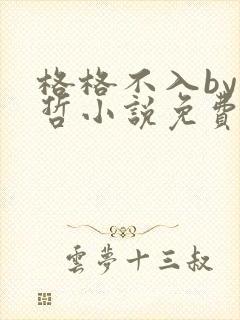 格格不入by
哲小說免費
雲夢十三叔